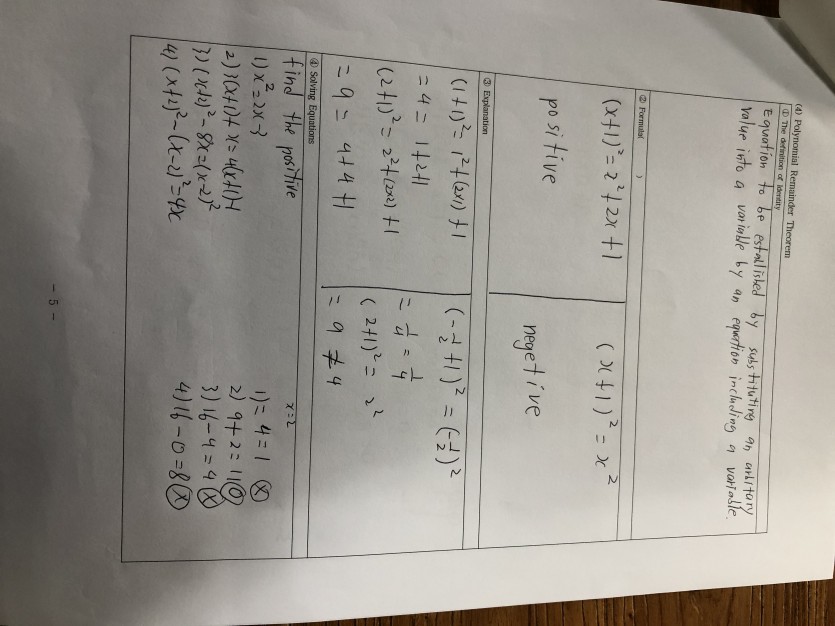 (4) Polynomial Remainder Theorem
① The definition of Identity
Equation to be established by substituting an arbitary
value into a variable by an equation including a variable.
② Formula
(x+1)² = x² + 2x + 1
(x+1)² = x²
positive
negetive
③ Explanation
(1+1)² = 1² + (2x1) + 1
= 4 = 1+2+1
(2+1)² = 2² + (2x2) + 1
= 9 = 4+4+1
(-1/2 +1)² = (-1/2)²
= 1/4 = 1/4
(2+1)² = 2²
= 9 ≠ 4
④ Solving Equations
find the positive
1) x² = 2x-3
2) 3(x+1)+x = 4(x+1)-1
3) (x+2)² - 8x = (x-2)²
4) (x+2)² - (x-2)² = 4x
x=2
1) = 4 = 1 Ⓧ
2) 9+2 = 11 Ⓞ
3) 16-4 = 4 Ⓧ
4) 16-0 = 8 Ⓧ
- 5 -